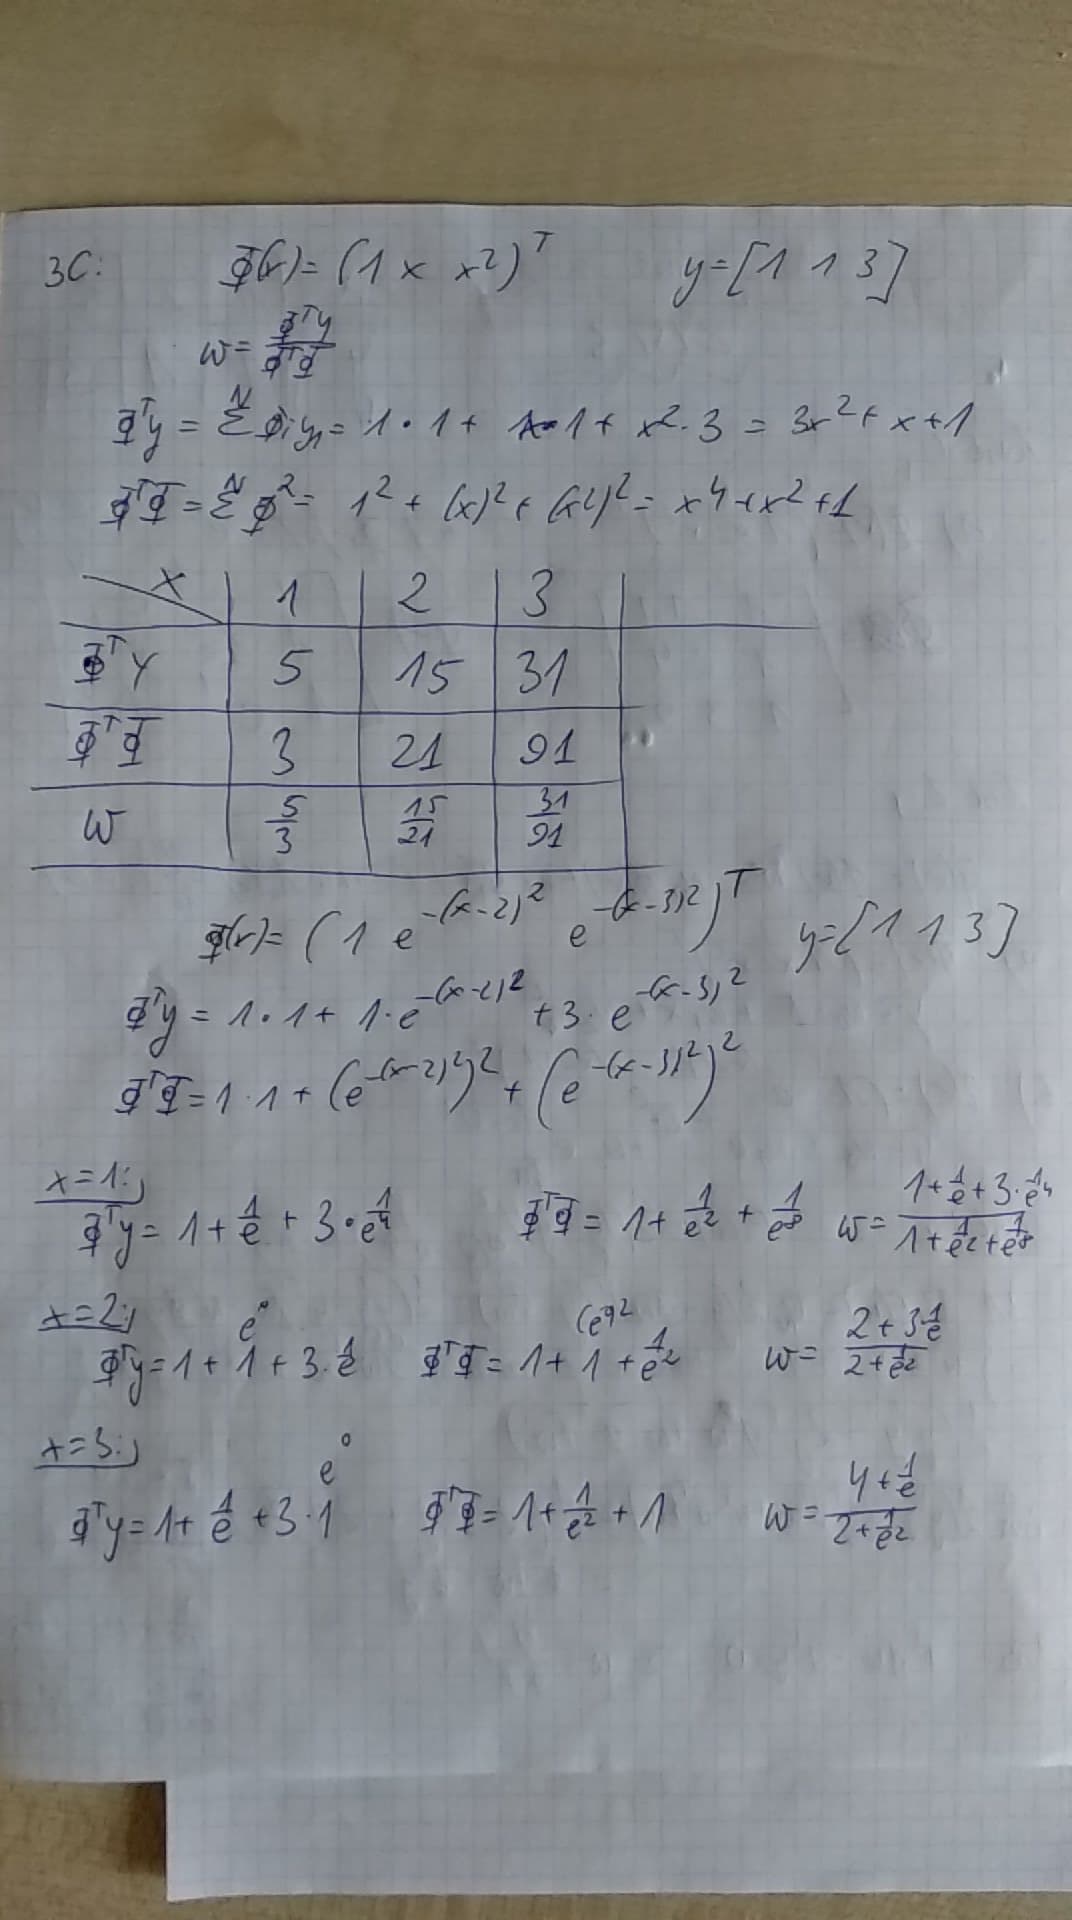 3C: Φ(x) = (1 x x²)ᵀ y = [1 1 3]
w = Φᵀy / ΦᵀΦ
Φᵀy = Σᴺ Φᵢyₙ = 1 · 1 + x · 1 + x² · 3 = 3x² + x + 1
ΦᵀΦ = Σᴺ Φ² = 1² + (x)² + (x²)² = x⁴ + x² + 1
x 1 2 3
Φᵀy 5 15 31
ΦᵀΦ 3 21 91
w 5/3 15/21 31/91
Φ(x) = (1 e^-(x-2)² e^-(x-3)²)ᵀ y = [1 1 3]
Φᵀy = 1 · 1 + 1 · e^-(x-2)² + 3 · e^-(x-3)²
ΦᵀΦ = 1 · 1 + (e^-(x-2)²)² + (e^-(x-3)²)²
x = 1:
Φᵀy = 1 + 1/e + 3 · 1/e⁴ ΦᵀΦ = 1 + 1/e² + 1/e⁸ w = (1 + 1/e + 3 · 1/e⁴) / (1 + 1/e² + 1/e⁸)
x = 2: e⁰ (e⁰)²
Φᵀy = 1 + 1 + 3 · 1/e ΦᵀΦ = 1 + 1 + 1/e² w = (2 + 3 · 1/e) / (2 + 1/e²)
x = 3: e⁰
Φᵀy = 1 + 1/e + 3 · 1 ΦᵀΦ = 1 + 1/e² + 1 w = (4 + 1/e) / (2 + 1/e²)